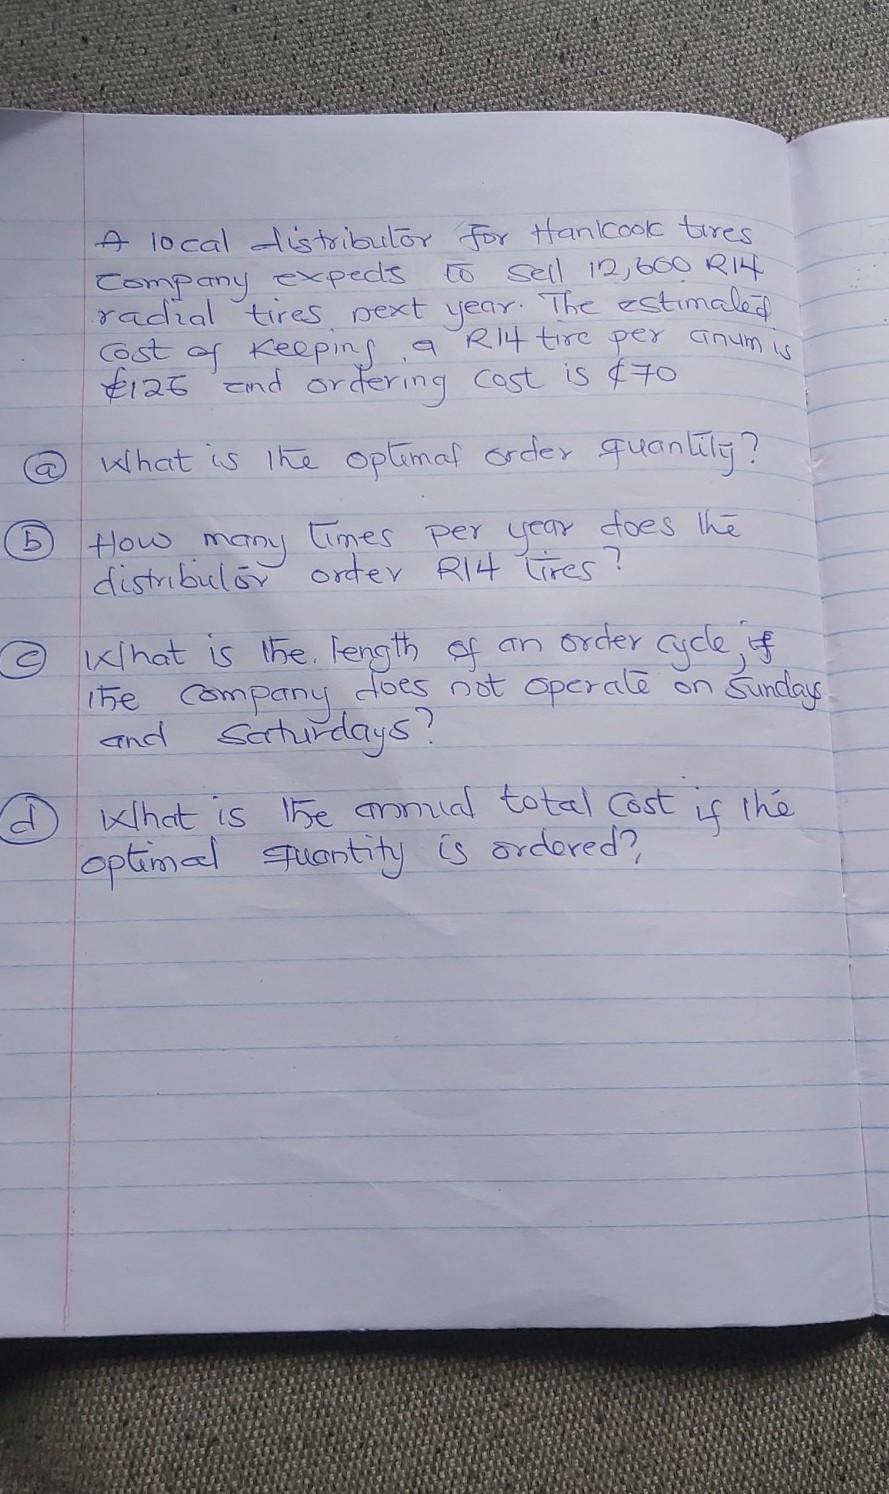 A local distributor for Hankook tires
company expects to sell 12,600 R14
radial tires next year. The estimated
cost of keeping a R14 tire per anum is
₵126 and ordering cost is ₵70
(a) What is the optimal order quantity?
(b) How many times per year does the
distributor order R14 tires?
(c) What is the length of an order cycle, if
the company does not operate on Sundays
and Saturdays?
(d) What is the annual total cost if the
optimal quantity is ordered?